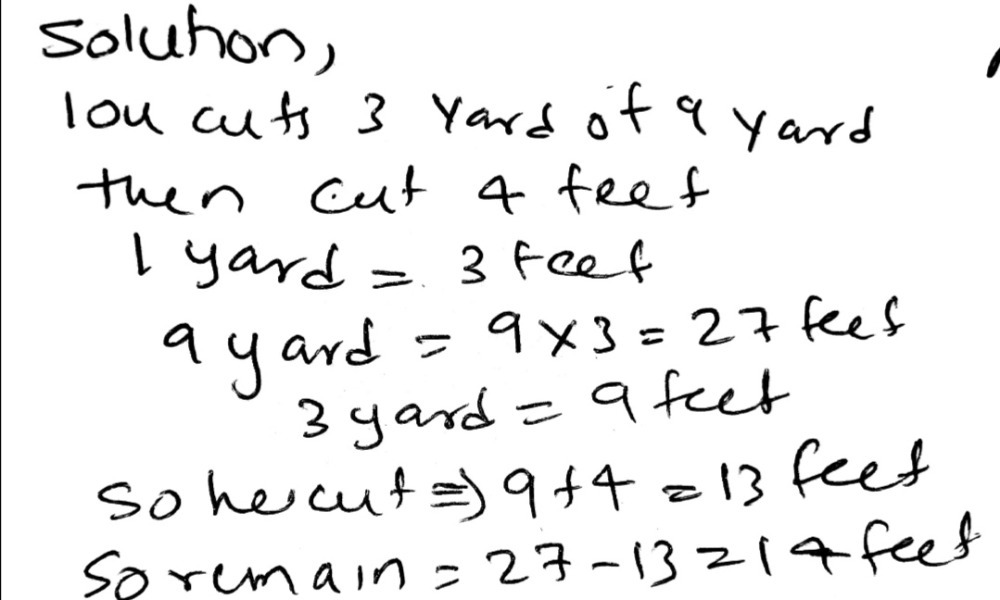 Solution,
lou cuts 3 Yard of 9 yard
then cut 4 feet
1 yard = 3 feet
9 yard = 9 x 3 = 27 feet
3 yard = 9 feet
So he cut ⇒ 9 + 4 = 13 feet
So remain = 27 - 13 = 14 feet